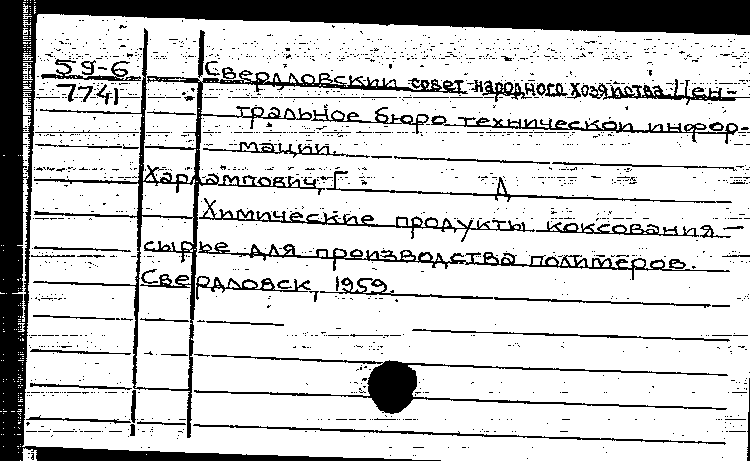 59-6
7741
Свердловский совет народного хозяйства. Цен-
тральное бюро технической инфор-
мации.
Харлампович, Г. Д
Химические продукты коксования –
сырье для производства полимеров.
Свердловск, 1959.